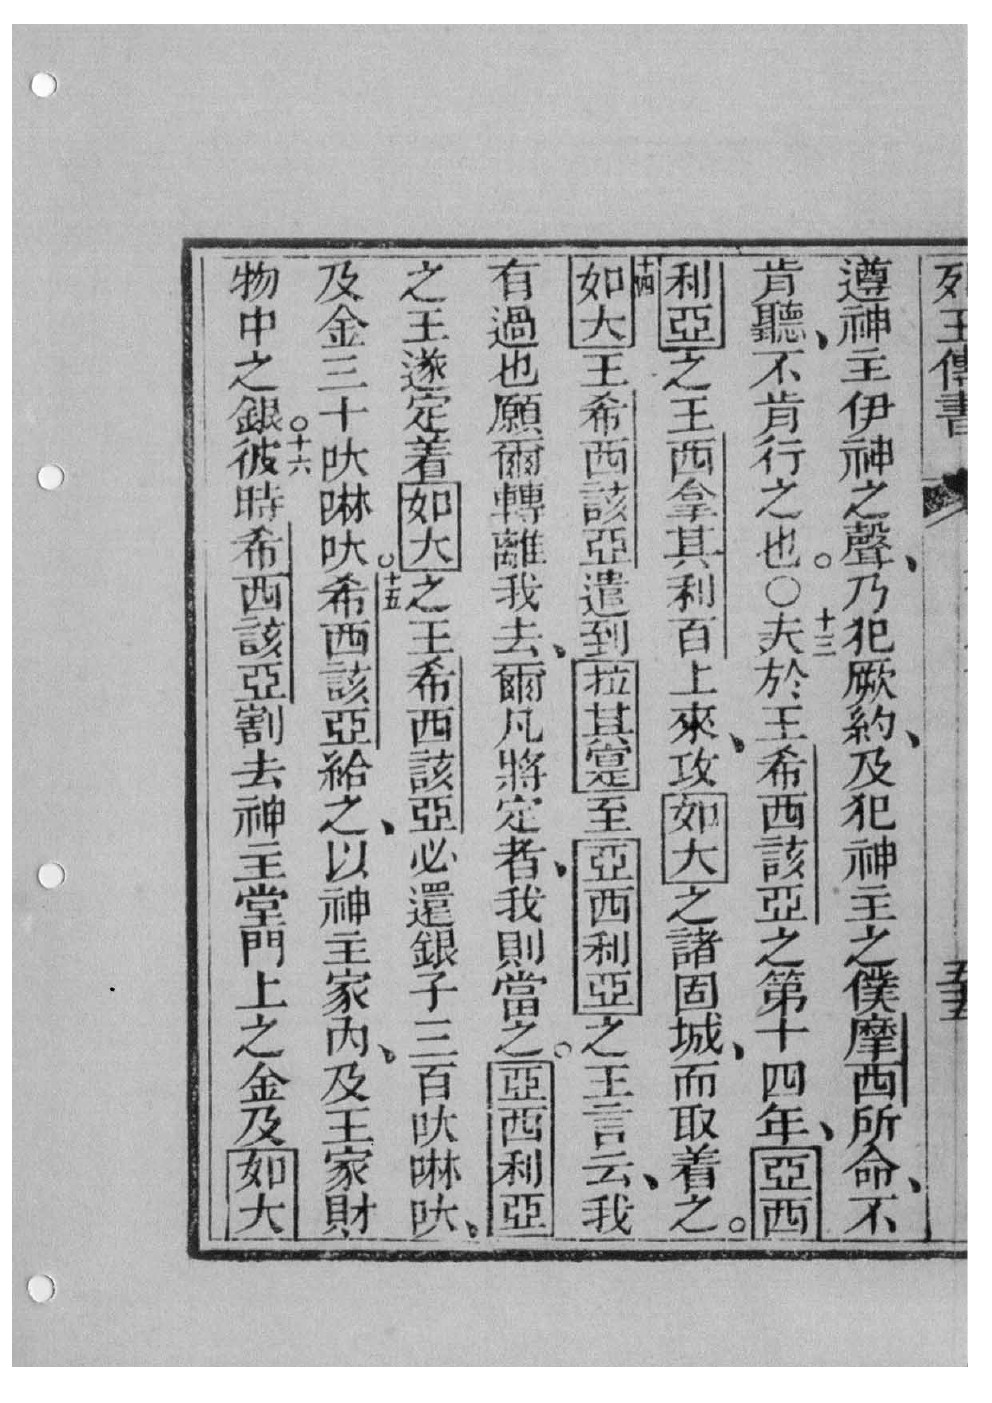 列王傳書 五五
遵神主伊神之聲、乃犯厥約、及犯神主之僕摩西所命、不
肯聽、不肯行之也。○十三夫於王希西該亞之第十四年、亞西
利亞之王西拿其利百上來、攻如大之諸固城、而取着之。
十四如大王希西該亞遣到拉其寔至亞西利亞之王言云、我
有過也願爾轉離我去、爾凡將定者、我則當之。亞西利亞
之王遂定着如大之王希西該亞必還銀子三百吠啉吠、
及金三十吠啉吠。十五希西該亞給之、以神主家內、及王家財
物中之銀。十六彼時希西該亞割去神主堂門上之金及如大